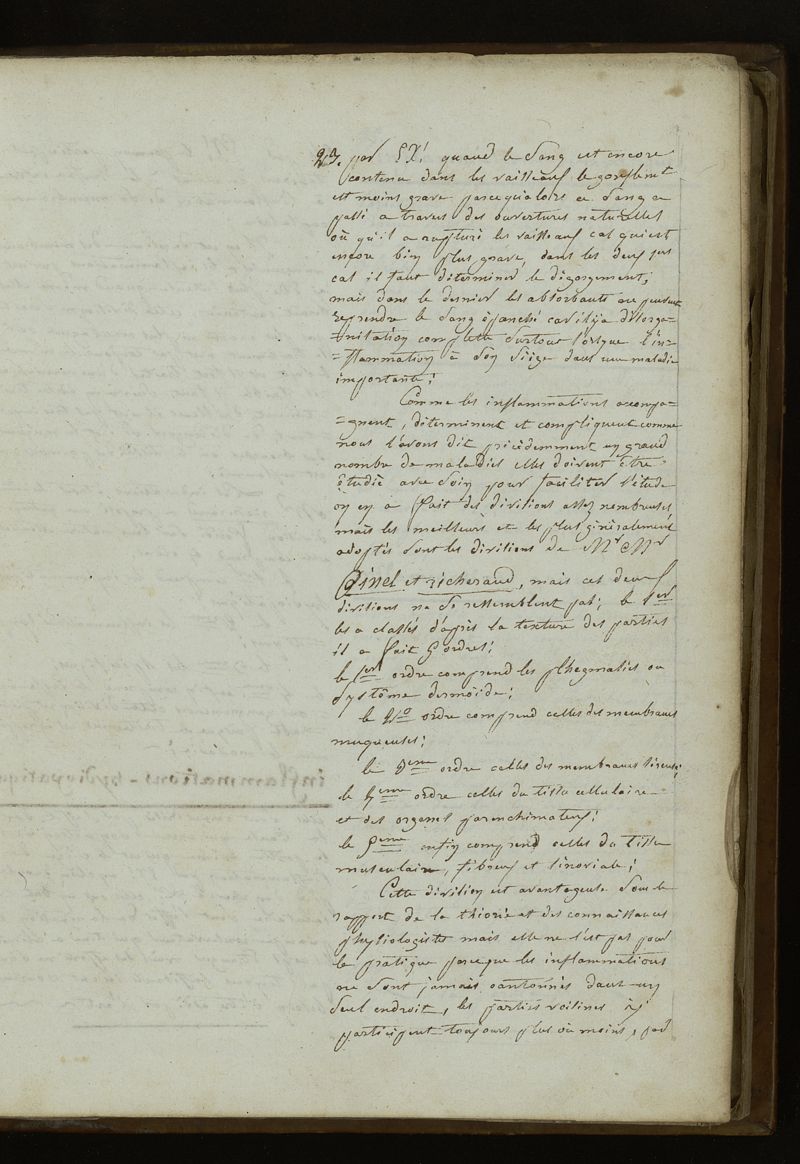 23. par EX! quand le sang est encore
contenu dans les vaisseaux le gonflemt
est moins grave parcequ'alors ce sang a
passé a travers des ouvertures naturelles
où qu'il a rupturé les vaisseaux cas qui est
encore bien plus grave, dans les deux pers
cas il faut déterminer le dégorgement;
mais dans le dernier les absorbants ne peuvent
reprendre le sang épanché car il y a désorga=
=nisation complette surtout lorsque l'in=
=flammation à son siège dans une maladie
importante;
Comme les inflammations accompa=
=gnent, déterminent et compliquent comme
nous l'avons dit précédemment un grand
nombre de maladies elles doivent être
étudié avec soin pour faciliter l'étude
on en a fait des divisions assez nombreuses
mais les meilleurs et les plus généralement
adoptés sont les divisions de Mr Mr
Pinel et richerand, mais ces deux
divisions ne se ressemblent pas; le 1er
les a classés d'après la texture des parties
il a fait 5 ordres;
le 1er ordre comprend les phlegmasies ou
systême dermoïde;
le 2o ordre comprend celles des membranes
muqueuses;
le 3eme ordre celles des membranes séreuses;
le 4eme ordre celles du tissu cellulaire
et des organes parenchimateux;
le 5eme enfin comprend celles du tissu
musculaire, fibreux et sinoviale;
Cette division est avantageuse sous le
rapport de la théorie et des connaissances
physiologistes mais elle ne l'est pas pour
la pratique parceque les inflammations
ne sont jamais cantonnés dans un
seul endroit, les parties voisines y
participent toujours plus où moins, par
inflammations - hydiopatiques